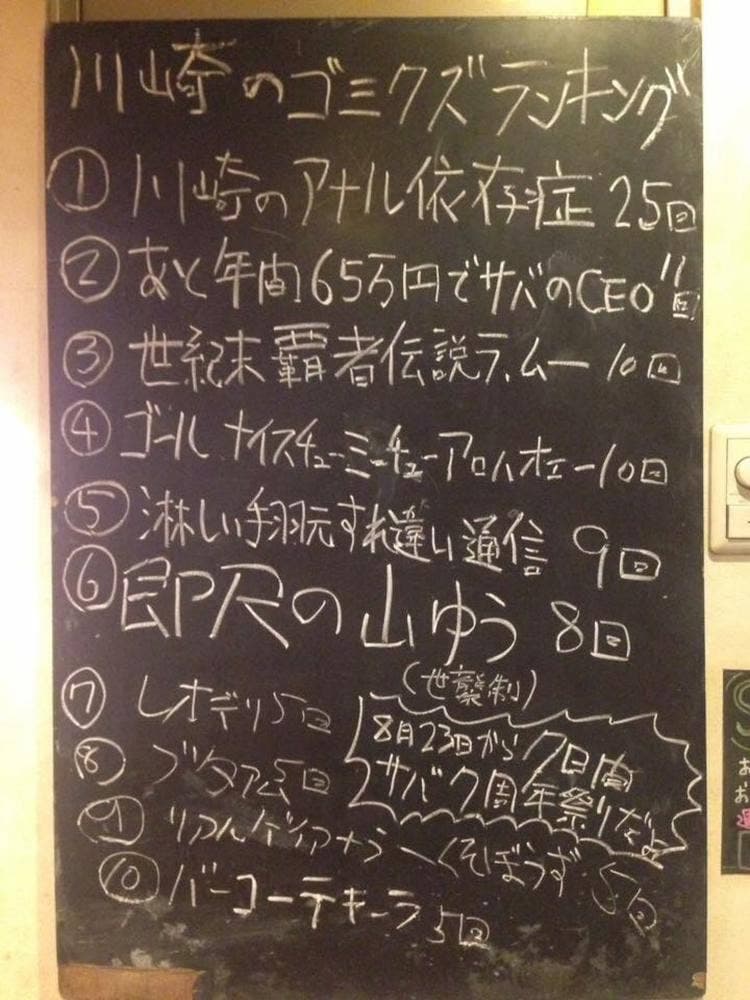 川崎のゴミクズランキング
① 川崎のアナル依存症 25回
② あと年間65万円でサバのCEO 11回
③ 世紀末覇者伝説ラ.ムー 10回
④ ゴールナイスチューミーチューアロハオエー10回
⑤ 淋しい手羽元すれ違い通信 9回
⑥ 即尺の山ゆう 8回
(世襲制)
⑦ レオデリ5回
⑧ ブタアム5回
8月23日から7日間
サバ7周年祭りだよ
⑨ リアルゲイアナラーくそぼうず 5回
⑩ バーコーテキーラ5回